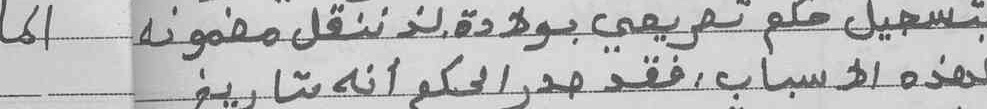 بتسجيل حكم تصريحي بولادة. لذ ننقل مضمونه الما
لهذه الاسباب، فقد صدر الحكم أنه بتاريخ